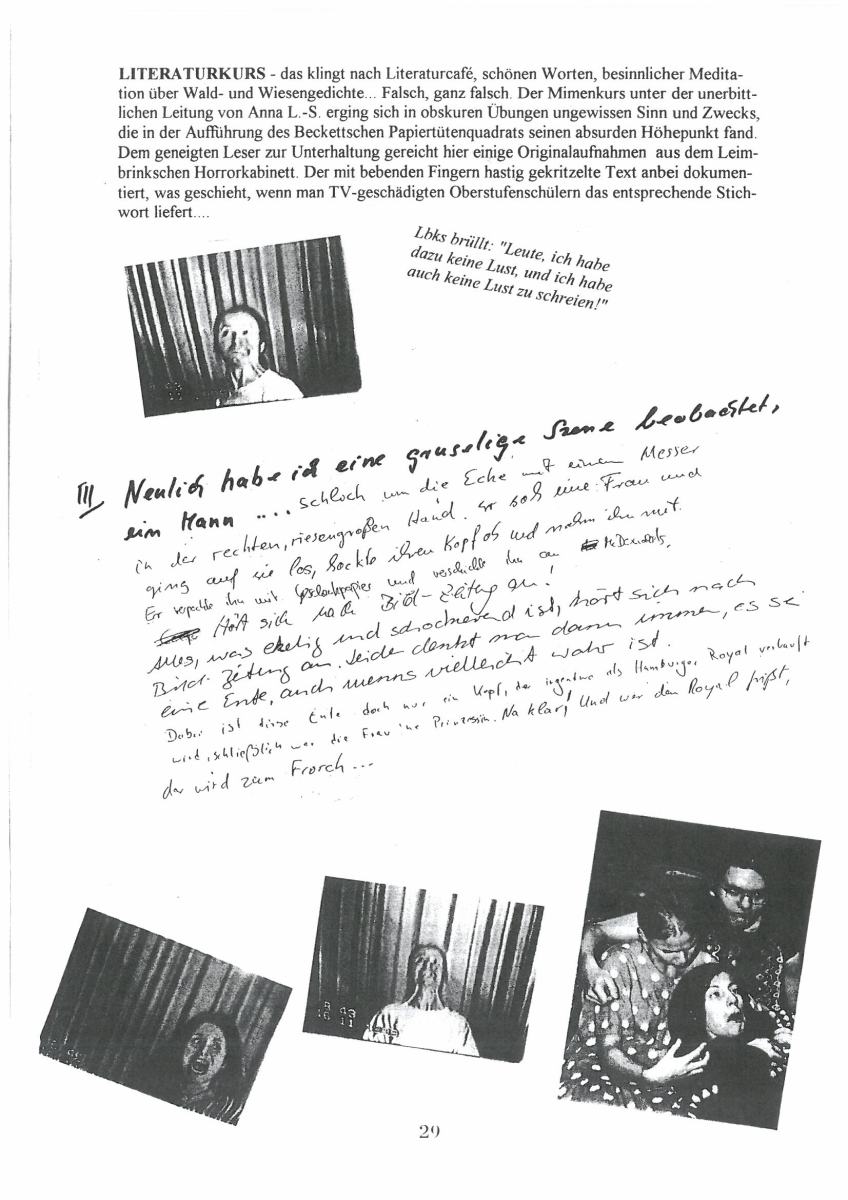 LITERATURKURS - das klingt nach Literaturcafé, schönen Worten, besinnlicher Medita-
tion über Wald- und Wiesengedichte... Falsch, ganz falsch. Der Mimenkurs unter der unerbitt-
lichen Leitung von Anna L.-S. erging sich in obskuren Übungen ungewissen Sinn und Zwecks,
die in der Aufführung des Beckettschen Papiertütenquadrats seinen absurden Höhepunkt fand.
Dem geneigten Leser zur Unterhaltung gereicht hier einige Originalaufnahmen aus dem Leim-
brinkschen Horrorkabinett. Der mit bebenden Fingern hastig gekritzelte Text anbei dokumen-
tiert, was geschieht, wenn man TV-geschädigten Oberstufenschülern das entsprechende Stich-
wort liefert....
Lbks brüllt: "Leute, ich habe
dazu keine Lust, und ich habe
auch keine Lust zu schreien!"
III Neulich habe ich eine gruselige Szene beobachtet,
ein Mann .... schlich um die Ecke mit einem Messer
in der rechten, riesengroßen Hand. Er sah eine Frau und
ging auf sie los, hackte ihren Kopf ab und nahm ihn mit.
Er verpackte ihn mit Geschenkpapier und verschickte ihn an McDonalds.
Hört sich nach Bild-Zeitung an!
Alles, was ekelig und schockierend ist, hört sich nach
Bild-Zeitung an. Leider denkt man dann immer, es sei
eine Ente, auch wenns vielleicht wahr ist.
Dabei ist diese Ente doch nur ein Kopf, der irgendwo als Hamburger Royal verkauft
wird, schließlich war die Frau 'ne Prinzessin. Na klar! Und wer den Royal frißt,
der wird zum Frorch...
29